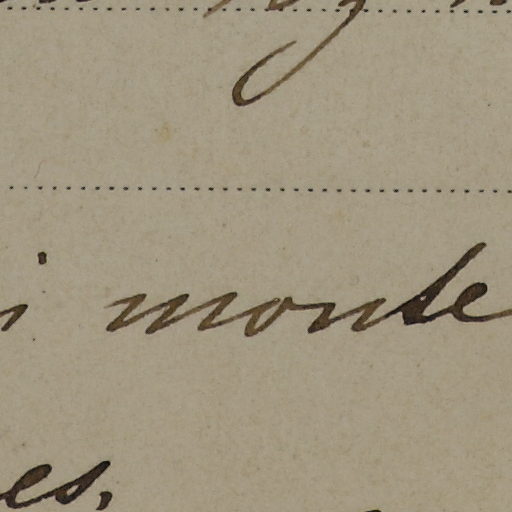 i monte
es,